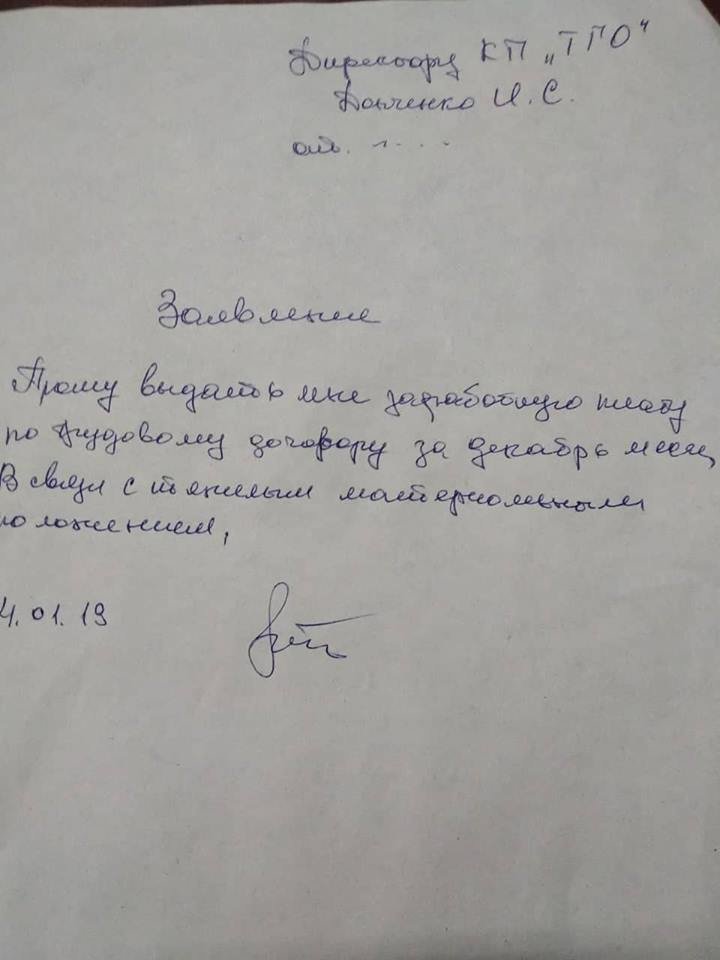 Директору КП „ТГО"
Данченко И. С.
от. . . . .
Заявление
Прошу выдать мне заработную плату
по трудовому договору за декабрь месяц
В связи с тяжелым материальным
положением,
4.01.19